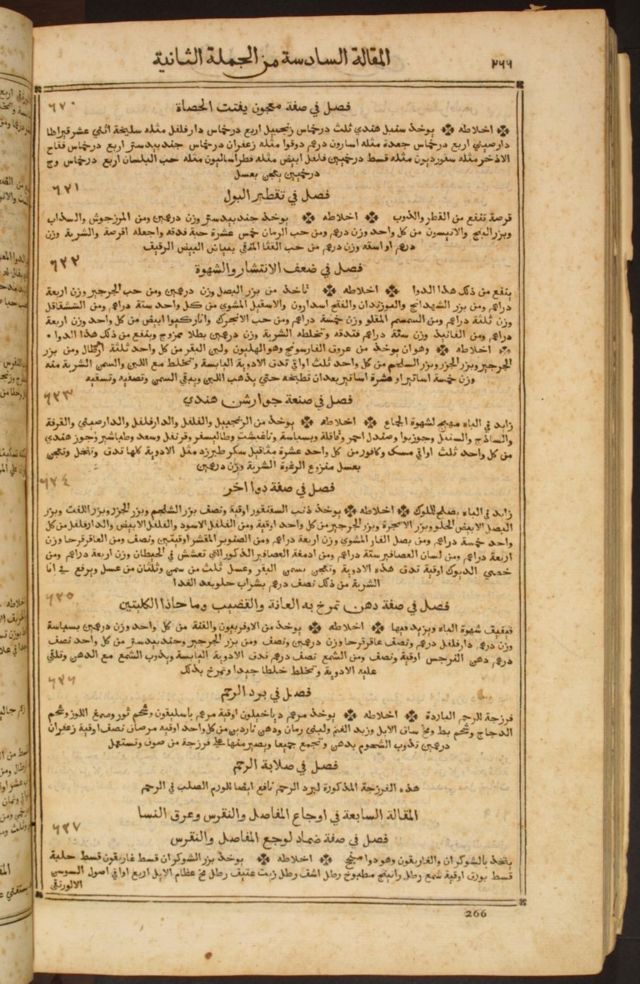 المقالة السادسة من الجملة الثانية
٢٦٦
فصل في صفة معجون يفتت الحصاة
٦٢٠
اخلاطه يوخذ سنبل هندي ثلث درخماس زنجبيل اربع درخماس دارفلفل مثله سليخة اثني عشر قيراطا
دارصيني اربع درخماس جعدة مثله اسارون درهم دوقوا مثله زعفران درخماس جندبيدستر اربع درخماس فقاح
الاذخر مثله سقورديون مثله قسط درخميين فلفل ابيض مثله فطراساليون مثله حب البلسان اربع درخماس وج
درخميين يعجن بعسل
٦٢١
فصل في تقطير البول
قرصة تنفع من القطر والذوب اخلاطه يوخذ جندبيدستر وزن درهمين ومن المرزجوش والسذاب
وبزر البنج والانيسون من كل واحد وزن درهم ومن حب الرمان خمس عشرة حبة فدقه واجعله اقرصة والشربة وزن
درهم او اسقه وزن درهم من حب القثا المنقي ببياض البيض الرقيق
٦٢٢
فصل في ضعف الانتشار والشهوة
ينفع من ذلك هذا الدوا اخلاطه تاخذ من بزر البصل وزن درهمين ومن حب الجرجير وزن اربعة
دراهم ومن بزر الشهدانج اسدارون والاسقيل المشوي من كل واحد ستة دراهم ومن الشقاقل
وزن ثلثة دراهم ومن السمسم المقلو وزن خمسة دراهم ومن حب الانجرة ابيض من كل واحد وزن اربعة
دراهم ومن الفانيذ وزن ستة دراهم فتدقه وتخلطه الشربة وزن درهمين بطلا ممزوج وينفع من ذلك هذا الدوا
اخلاطه وهو ان يوخذ من عروق وهو الهليون ولبن البقر من كل واحد ثلثة ارطال ومن بزر
الجرجير وبزر الجزر وبزر السلجم من كل واحد ثلث اواقي تدق الادوية اليابسة وتخلط مع اللبن والسمن الشربة منه
وزن خمسة اساتير او عشرة اساتير بعد ان تطبخه حتي يذهب اللبن ويبقي السمن وتصفيه وتسقيه
٦٢٣
فصل في صنعة جوارشن هندي
زايد في الباه مهيج لشهوة الجماع اخلاطه يوخذ من الزنجبيل والفلفل والدارفلفل والدارصيني والقرفة
والساذج والسنبل وجوزبوا وصندل احمر وقاقلة وبسباسة ونانخشت وطاليسفر وقرنفل وسعد وطباشير وجوز هندي
من كل واحد ثلث اواقي مسك وكافور من كل واحد عشرة مثاقيل سكر طبرزد مثل الادوية كلها تدق وتنخل وتعجن
بعسل منزوع الرغوة الشربة وزن درهمين
٦٢٤
فصل في صفة دوا اخر
زايد في الباه يصلح للملوك اخلاطه يوخذ ذنب السقنقور اوقية ونصف بزر الشلجم وبزر الجزر وبزر اللفت وبزر
البصل الابيض الحلو وبزر الانجرة وبزر الجرجير من كل واحد اوقية ومن الفلفل الاسود والفلفل الابيض والدارفلفل من كل
واحد خمسة دراهم ومن بصل الفار المشوي وزن اربعة دراهم ومن الصنوبر المقشر اوقيتين ونصف ومن العاقرقرحا وزن
اربعة دراهم ومن لسان العصافير ستة دراهم ومن ادمغة العصافير الذكور التي تعشش في الحيطان وزن اربعة دراهم ومن
خصي الديوك اوقية تدق هذه الادوية وتعجن بسمن البقر وعسل ثلث من سمن وثلثان من عسل ويرفع في انا
الشربة من ذلك نصف درهم بشراب حلو بعد الغدا
٦٢٥
فصل في صفة دهن تمرخ به العانة والقضيب وما حاذا الكليتين
فيفيق شهوة الباه ويزيد فيها اخلاطه يوخذ من الاوفربيون والقنة من كل واحد وزن درهمين بسباسة
وزن درهم دارفلفل درهم ونصف عاقرقرحا وزن درهمين ونصف ومن بزر الجرجير وجندبيدستر من كل واحد نصف
درهم دهن النرجس اوقية ونصف ومن الشمع نصف درهم تدق الادوية اليابسة ويذوب الشمع مع الدهن وتلقي
عليه الادوية وتخلط خلطا جيدا وتمرخ بذلك
٦٢٦
فصل في برد الرحم
فرزجة للرحم الباردة اخلاطه يوخذ مرهم دياخيلون اوقية مرهم باسليقون وشحم ثور وصمغ اللوز وشحم
الدجاج وشحم بط ومخ ساق الايل وزبد الغنم ودهن ناردين من كل واحد اوقية مر صاف نصف اوقية زعفران
درهمين تذوب الشحوم بدهن وتجمع جميعا ويصير منها فرزجة من صوف وتستعمل
فصل في صلابة الرحم
هذه الفرزجة المذكورة لبرد الرحم نافع ايضا للورم الصلب في الرحم
المقالة السابعة في اوجاع المفاصل والنقرس وعرق النسا
٦٢٧
فصل في صفة ضماد لوجع المفاصل والنقرس
يتخذ بالشوكران والغاريقون وهو دوا منجح اخلاطه يوخذ بزر الشوكران قسط غاريقون قسط حلبة
قسط بورق اوقية شمع رطل راتينج مطبوخ رطل اشق رطل زيت عتيق رطل مخ عظام الايل اربع اواقي اصول السوسن
266